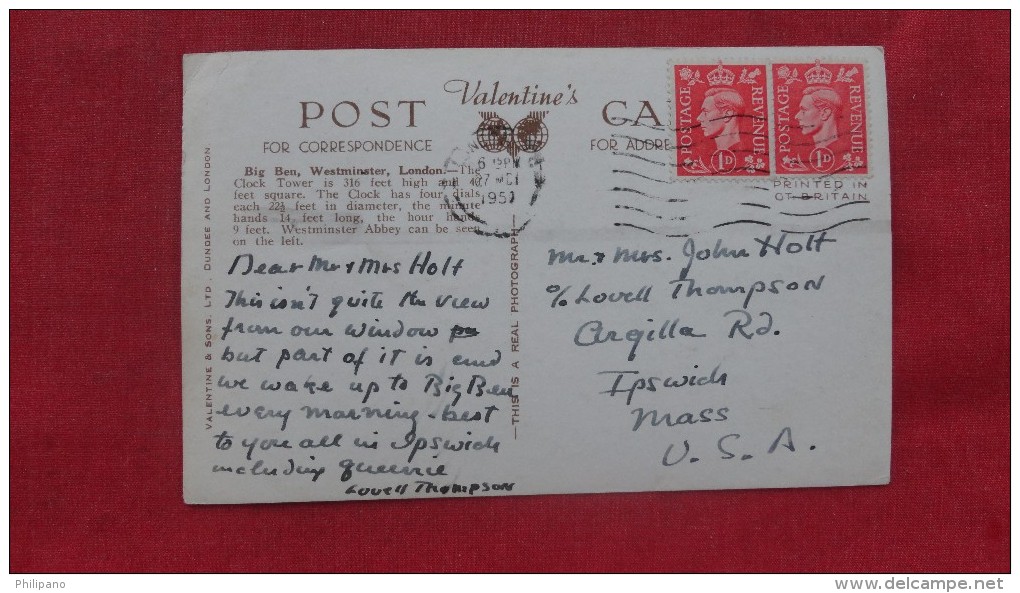 POST
Valentine's
CA
FOR CORRESPONDENCE
FOR ADDRE
Big Ben, Westminster, London.—The
Clock Tower is 316 feet high and 40
feet square. The Clock has four dials
each 22½ feet in diameter, the minute
hands 14 feet long, the hour hands
9 feet. Westminster Abbey can be seen
on the left.
VALENTINE & SONS, LTD., DUNDEE AND LONDON
—THIS IS A REAL PHOTOGRAPH—
Dear Mr & Mrs Holt
This isn't quite the view
from our window
but part of it is and
we wake up to Big Ben
every morning - best
to you all in Ipswich
including Queenie
Lovell Thompson
POSTAGE
REVENUE
1D
POSTAGE
REVENUE
1D
PRINTED IN
GT BRITAIN
6
195
Mr. & Mrs. John Holt
c/o Lovell Thompson
Argilla Rd.
Ipswich
Mass
U. S. A.
Philipano
www.delcampe.net